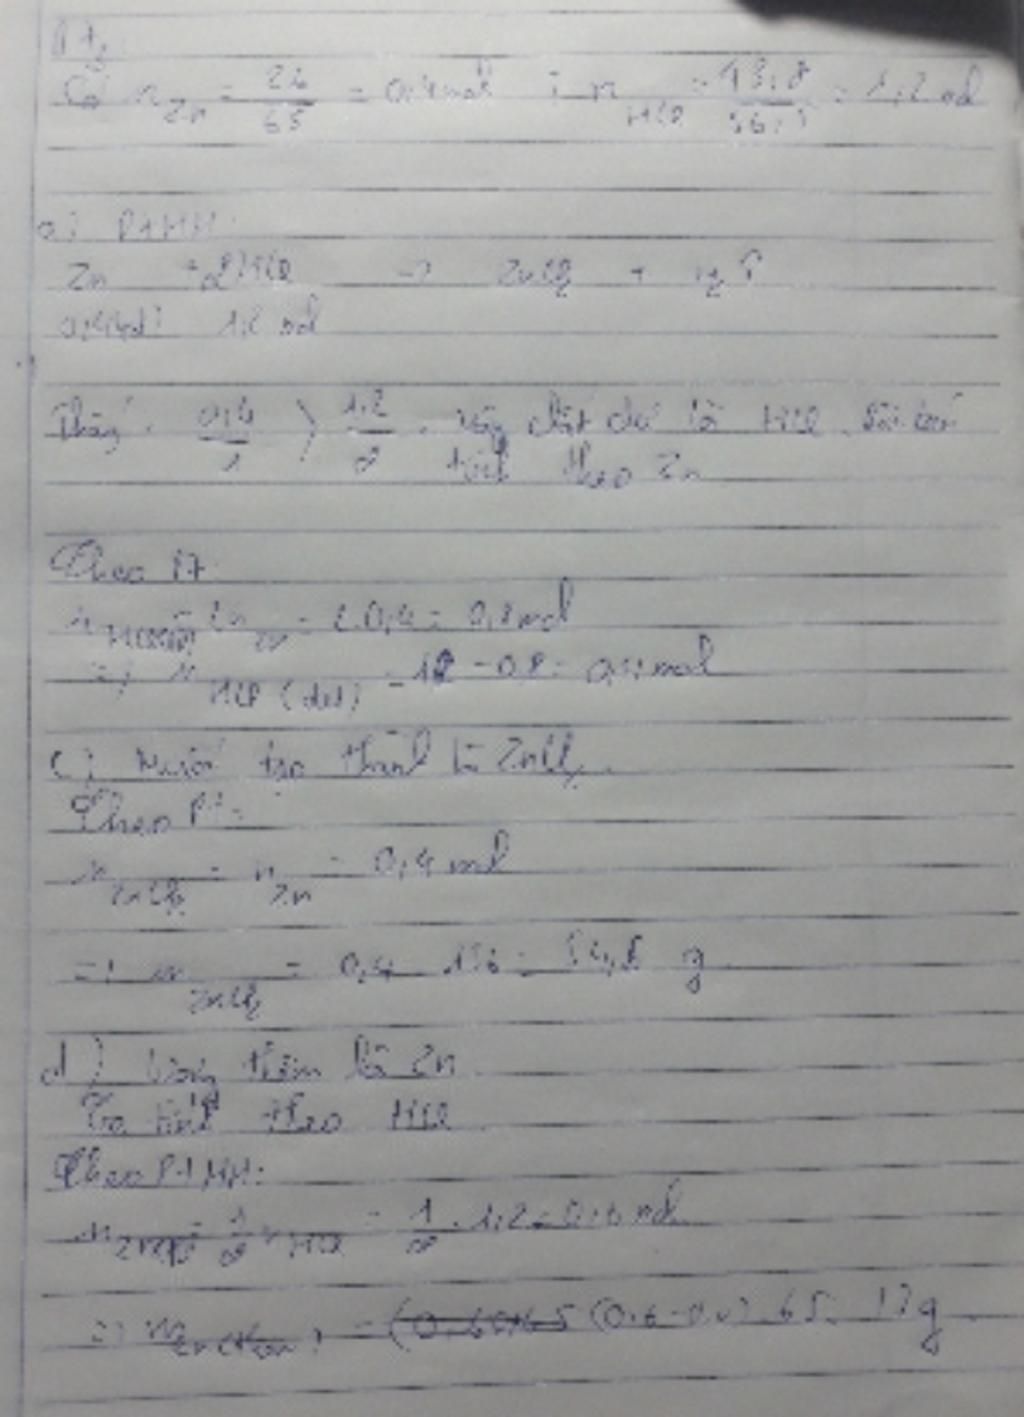 Có n Zn = 26/65 = 0,4 mol ; n HCl = 43,8/36,5 = 1,2 mol
a) PTHH:
Zn + 2HCl -> ZnCl2 + H2↑
0,4 mol 1,2 mol
Thấy: 0,4/1 > 1,2/2. Vậy chất dư là HCl.
tính theo Zn
Theo PT:
n HCl = 2n Zn = 2.0,4 = 0,8 mol
=> n HCl (dư) = 1,2 - 0,8 = 0,4 mol
c) Muối tạo thành là ZnCl2.
Theo PT:
n ZnCl2 = n Zn = 0,4 mol
=> m ZnCl2 = 0,4 . 136 = 54,4 g
d) thêm là Zn
Ta tính theo HCl
Theo PTHH:
n Zn = 1/2 n HCl = 1/2 . 1,2 = 0,6 mol
=> m Zn (thêm) = (0,6-0,4).65 = 13g